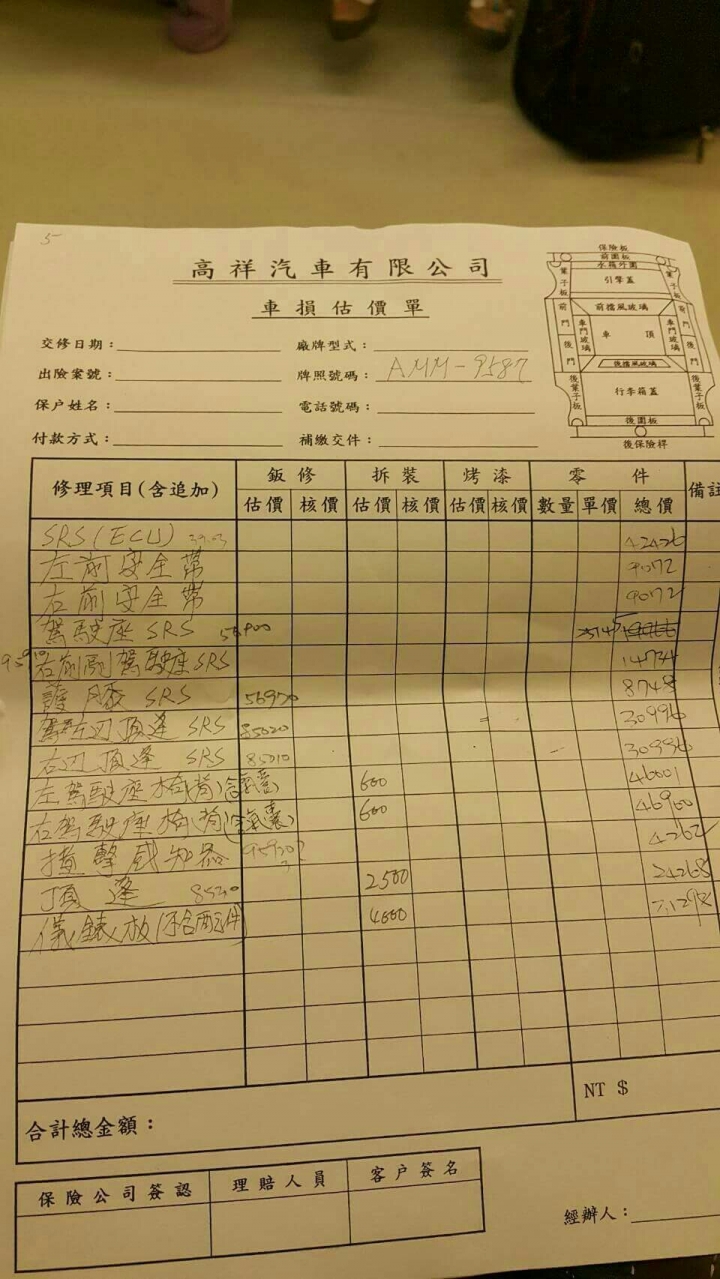 5
高祥汽車有限公司
車損估價單
交修日期： 廠牌型式：
出險案號： 牌照號碼： AMM-9587
保戶姓名： 電話號碼：
付款方式： 補繳交件：
保險板
前圍板
水箱外圍
葉子板 引擎蓋 葉子板
前擋風玻璃
前門 車門玻璃 車頂 車門玻璃 前門
後門 後擋風玻璃 後門
後葉子板 行李箱蓋 後葉子板
後圍板
後保險桿
修理項目(含追加) 鈑修 拆裝 烤漆 零件 備註
估價 核價 估價 核價 估價 核價 數量 單價 總價
SRS(ECU) 42426
左前安全帶 9072
右前安全帶 9072
駕駛座 SRS
右前副駕駛座 SRS 14734
護膝 SRS 8748
左辺頂逢 SRS 30996
右辺頂逢 SRS 85210 30996
左駕駛座椅背(含氣囊) 600 46001
右駕駛座椅背(含氣囊) 600 46900
撞擊感知器
頂逢 2500 24268
儀錶板 4000
合計總金額： NT $
保險公司簽認 理賠人員 客戶簽名
經辦人：